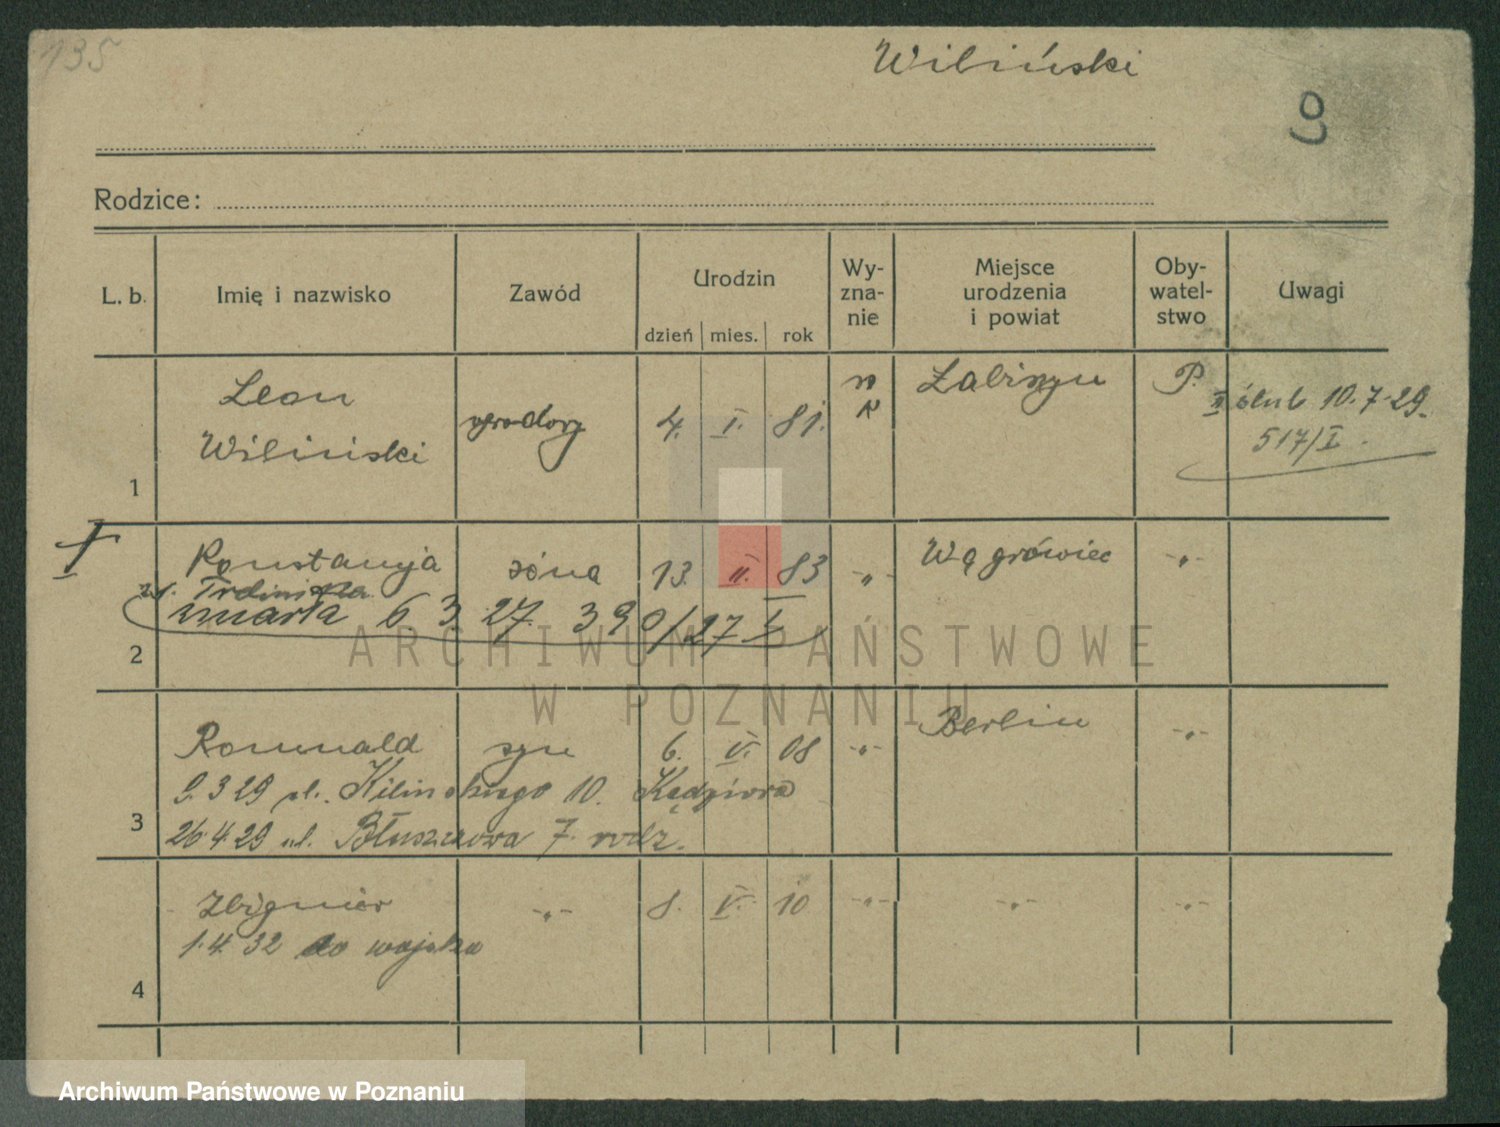 135
Wiliński
9
Rodzice:
L. b.
Imię i nazwisko
Zawód
Urodzin
dzień
mies.
rok
Wy-
zna-
nie
Miejsce
urodzenia
i powiat
Oby-
watel-
stwo
Uwagi
1
Leon
Wiliński
4. I. 81.
P.
II ślub 10.7.29.
517/I.
2
Konstancja
żona
13. II. 83
-„-
Wągrówiec
-„-
zmarła 6 3. 27. 390/27 I
3
Romuald
syn
6. VI. 08
-„-
Berlin
-„-
9.3 29 ul. Kilinskiego 10.
26.4 29 ul. Błuszczowa 7. rodz.
4
Zbigniew
-„-
8. V. 10
-„-
-„-
-„-
1.4.32 do wojska
ARCHIWUM PAŃSTWOWE
W POZNANIU
Archiwum Państwowe w Poznaniu